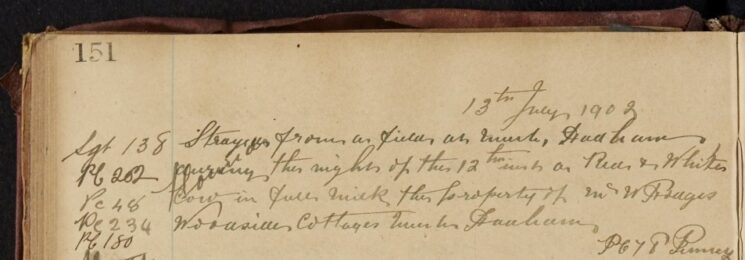 151
13th July 1902
Sgt 138 Strayed from a field at Much, Hadham
PC 202 during the night of the 12th inst a Red & White
Pc 48 Cow in full milk the property of Mr W Hodges
Pc 234 Woodside Cottages Much Hadham
PC 180
PC 67